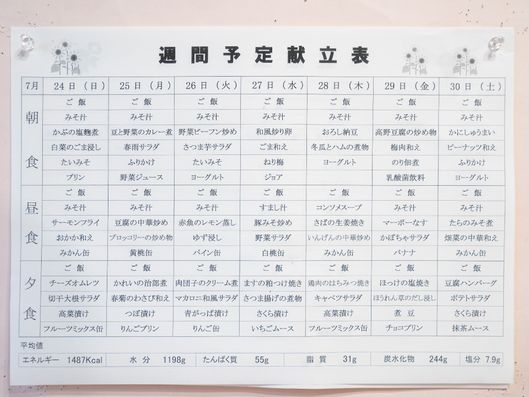 週間予定献立表
7月 24日(日) 25日(月) 26日(火) 27日(水) 28日(木) 29日(金) 30日(土)
朝食
ご飯 ご飯 ご飯 ご飯 ご飯 ご飯 ご飯
みそ汁 みそ汁 みそ汁 みそ汁 みそ汁 みそ汁 みそ汁
かぶの塩麹煮 豆と野菜のカレー煮 野菜ビーフン炒め 和風炒り卵 おろし納豆 高野豆腐の炒め物 かにしゅうまい
白菜のごま浸し 春雨サラダ さつま芋サラダ ごま和え 冬瓜とハムの煮物 梅肉和え ピーナッツ和え
たいみそ ふりかけ たいみそ ねり梅 ヨーグルト のり佃煮 ふりかけ
プリン 野菜ジュース ヨーグルト ジョア 乳酸菌飲料 ヨーグルト
昼食
ご飯 ご飯 ご飯 ご飯 ご飯 ご飯 ご飯
みそ汁 みそ汁 みそ汁 すまし汁 コンソメスープ みそ汁 みそ汁
サーモンフライ 豆腐の中華炒め 赤魚のレモン蒸し 豚みそ炒め さばの生姜焼き マーボーなす たらのみそ煮
おかか和え ブロッコリーの炒め物 ゆず浸し 野菜サラダ いんげんの中華炒め かぼちゃサラダ 畑菜の中華和え
みかん缶 黄桃缶 パイン缶 白桃缶 みかん缶 バナナ みかん缶
夕食
ご飯 ご飯 ご飯 ご飯 ご飯 ご飯 ご飯
チーズオムレツ かれいの治部煮 肉団子のクリーム煮 ますの粕つけ焼き 鶏肉のはちみつ焼き ほっけの塩焼き 豆腐ハンバーグ
切干大根サラダ 春菊のわさび和え マカロニ和風サラダ さつま揚げの煮物 キャベツサラダ ほうれん草のだし浸し ポテトサラダ
高菜漬け つぼ漬け 青かっぱ漬け さくら漬け 高菜漬け 煮豆 さくら漬け
フルーツミックス缶 りんごプリン りんご缶 いちごムース フルーツミックス缶 チョコプリン 抹茶ムース
平均値
エネルギー 1487Kcal 水分 1198g たんぱく質 55g 脂質 31g 炭水化物 244g 塩分 7.9g